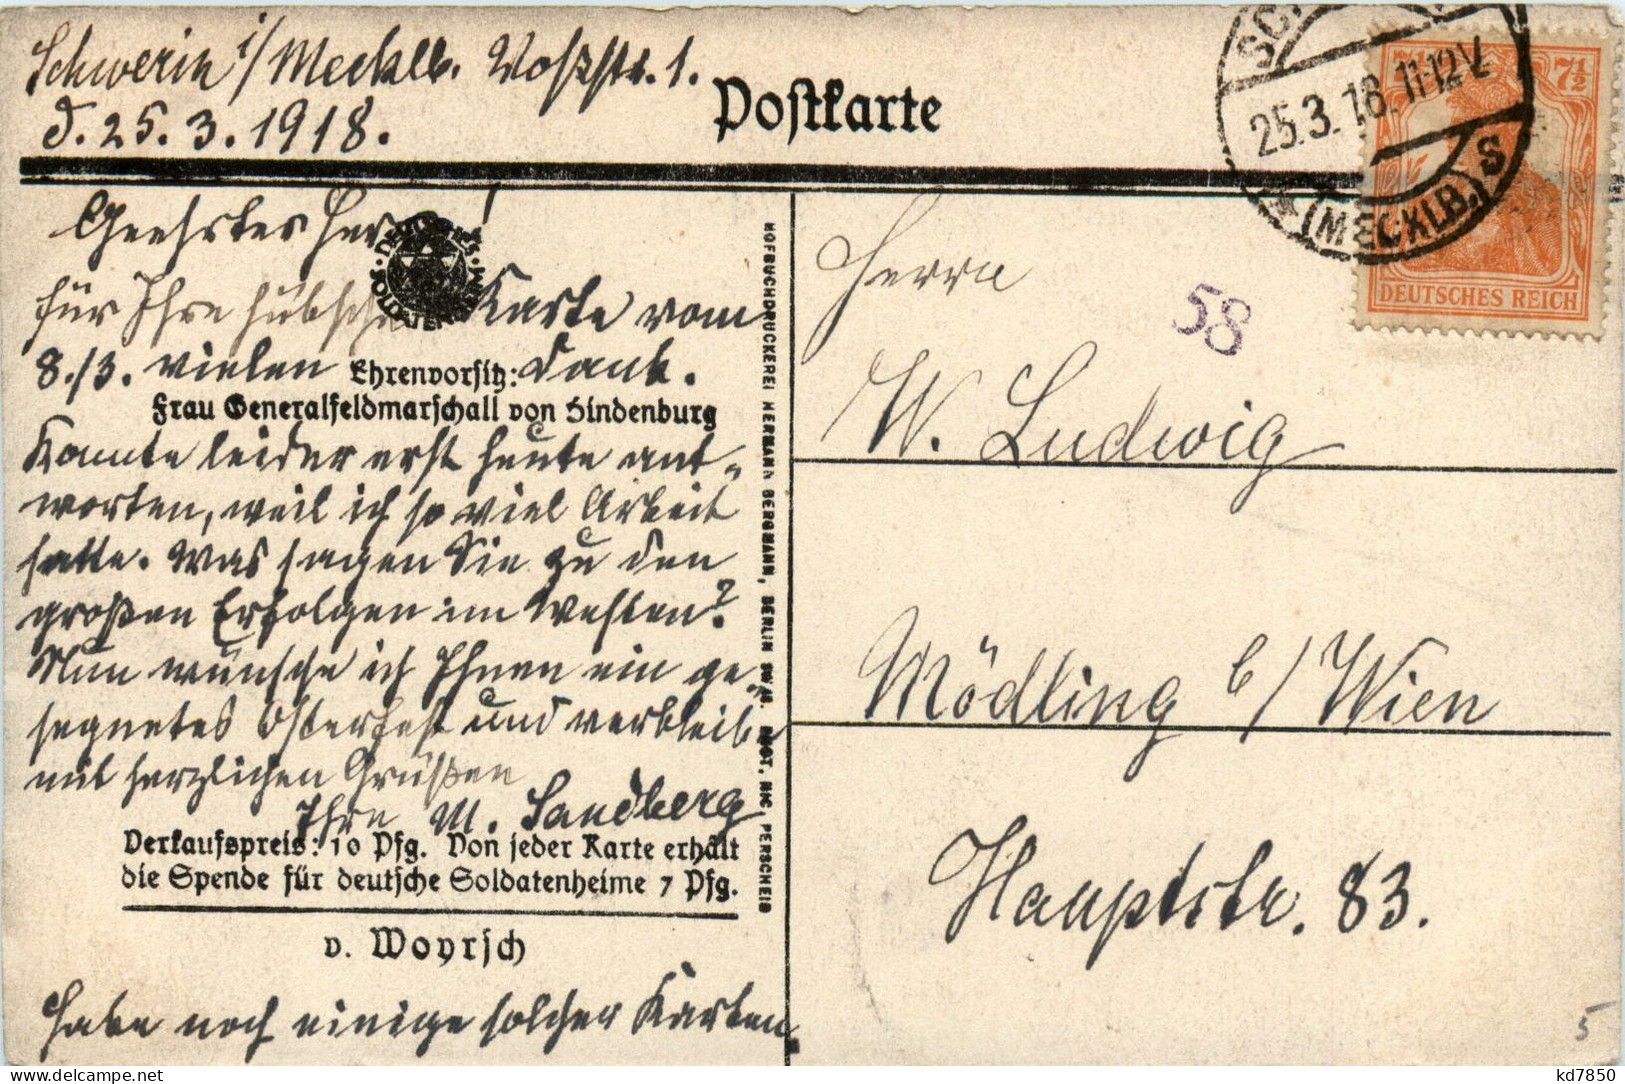 Schwerin i/Mecklb. Voßstr. 1.
d. 25. 3. 1918.
Postkarte
25.3.18.11-12V.
(MECKLB.) S
7½
DEUTSCHES REICH
Geehrter Herr!
für Ihre hübsche Karte vom
8./3. vielen Dank.
Ehrenvorsitz:
Frau Generalfeldmarschall von Hindenburg
Konnte leider erst heute ant-
worten, weil ich so viel Arbeit
hatte. Was sagen Sie zu den
großen Erfolgen im Westen?
Nun wünsche ich Ihnen ein ge-
segnetes Osterfest und verbleibe
mit herzlichen Grüßen
Ihre M. Sandberg
Verkaufspreis: 10 Pfg. Von jeder Karte erhält
die Spende für deutsche Soldatenheime 7 Pfg.
v. Woyrsch
Habe noch einige solcher Karten.
HOFBUCHDRUCKEREI HERMANN BERGMANN, BERLIN SW 48. PHOT. NIC. PERSCHEID
Herrn
58
W. Ludwig
Mödling b/Wien
Hauptstr. 83.
5
kd7850